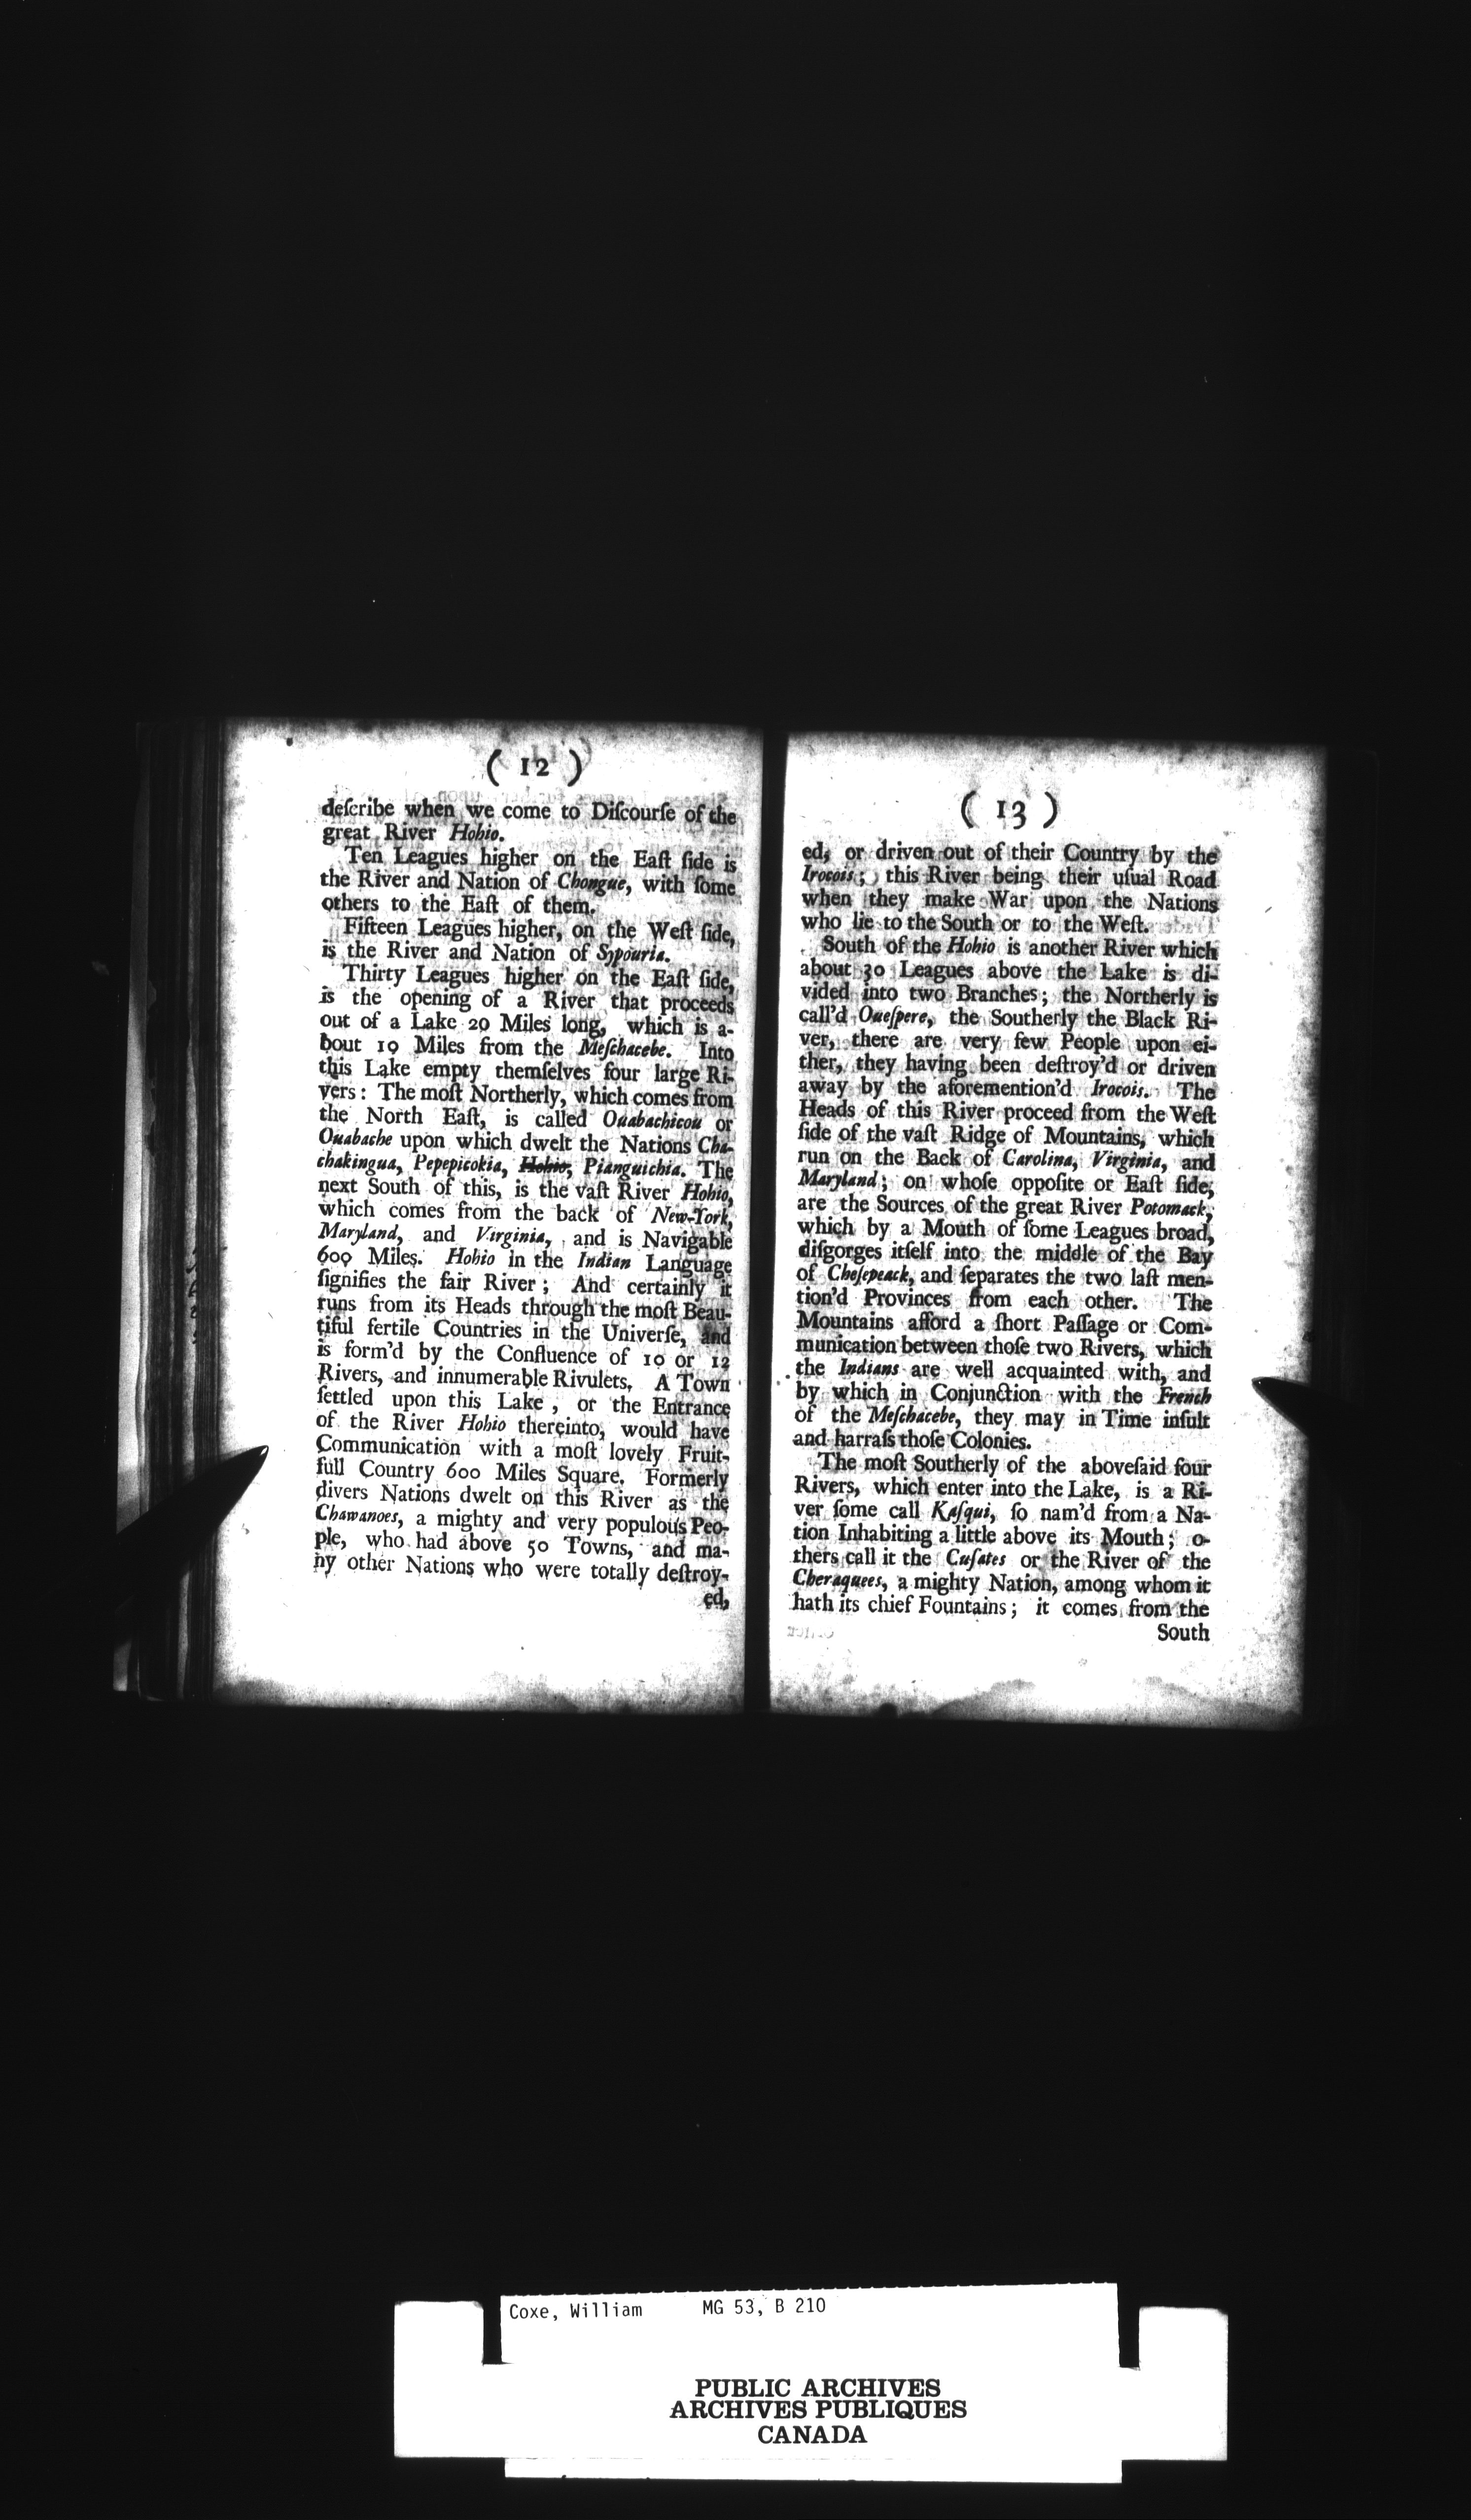 ( 12 )
deſcribe when we come to Diſcourſe of the
great River Hohio.
Ten Leagues higher on the Eaſt ſide is
the River and Nation of Chongue, with ſome
others to the Eaſt of them.
Fifteen Leagues higher, on the Weſt ſide,
is the River and Nation of Sypouria.
Thirty Leagues higher on the Eaſt ſide,
is the opening of a River that proceeds
out of a Lake 20 Miles long, which is a-
bout 10 Miles from the Meſchacebe. Into
this Lake empty themſelves four large Ri-
vers: The moſt Northerly, which comes from
the North Eaſt, is called Ouabachicou or
Ouabache upon which dwelt the Nations Cha-
chakingua, Pepepicokia, Hohio, Pianguichia. The
next South of this, is the vaſt River Hohio,
which comes from the back of New-York,
Maryland, and Virginia, and is Navigable
600 Miles. Hohio in the Indian Language
ſignifies the fair River; And certainly it
runs from its Heads through the moſt Beau-
tiful fertile Countries in the Univerſe, and
is form'd by the Confluence of 10 or 12
Rivers, and innumerable Rivulets. A Town
ſettled upon this Lake, or the Entrance
of the River Hohio thereinto, would have
Communication with a moſt lovely Fruit-
full Country 600 Miles Square. Formerly
divers Nations dwelt on this River as the
Chawanoes, a mighty and very populous Peo-
ple, who had above 50 Towns, and ma-
ny other Nations who were totally deſtroy-
ed,
( 13 )
ed, or driven out of their Country by the
Irocois; this River being their uſual Road
when they make War upon the Nations
who lie to the South or to the Weſt.
South of the Hohio is another River which
about 30 Leagues above the Lake is di-
vided into two Branches; the Northerly is
call'd Oueſpere, the Southerly the Black Ri-
ver, there are very few People upon ei-
ther, they having been deſtroy'd or driven
away by the aforemention'd Irocois. The
Heads of this River proceed from the Weſt
ſide of the vaſt Ridge of Mountains, which
run on the Back of Carolina, Virginia, and
Maryland; on whoſe oppoſite or Eaſt ſide,
are the Sources of the great River Potomack,
which by a Mouth of ſome Leagues broad,
diſgorges itſelf into the middle of the Bay
of Cheſepeack, and ſeparates the two laſt men-
tion'd Provinces from each other. The
Mountains afford a ſhort Paſſage or Com-
munication between thoſe two Rivers, which
the Indians are well acquainted with, and
by which in Conjunction with the French
of the Meſchacebe, they may in Time inſult
and harraſs thoſe Colonies.
The moſt Southerly of the aboveſaid four
Rivers, which enter into the Lake, is a Ri-
ver ſome call Kaſqui, ſo nam'd from a Na-
tion Inhabiting a little above its Mouth; o-
thers call it the Cuſates or the River of the
Cheraquees, a mighty Nation, among whom it
hath its chief Fountains; it comes from the
South
Coxe, William MG 53, B 210
PUBLIC ARCHIVES
ARCHIVES PUBLIQUES
CANADA